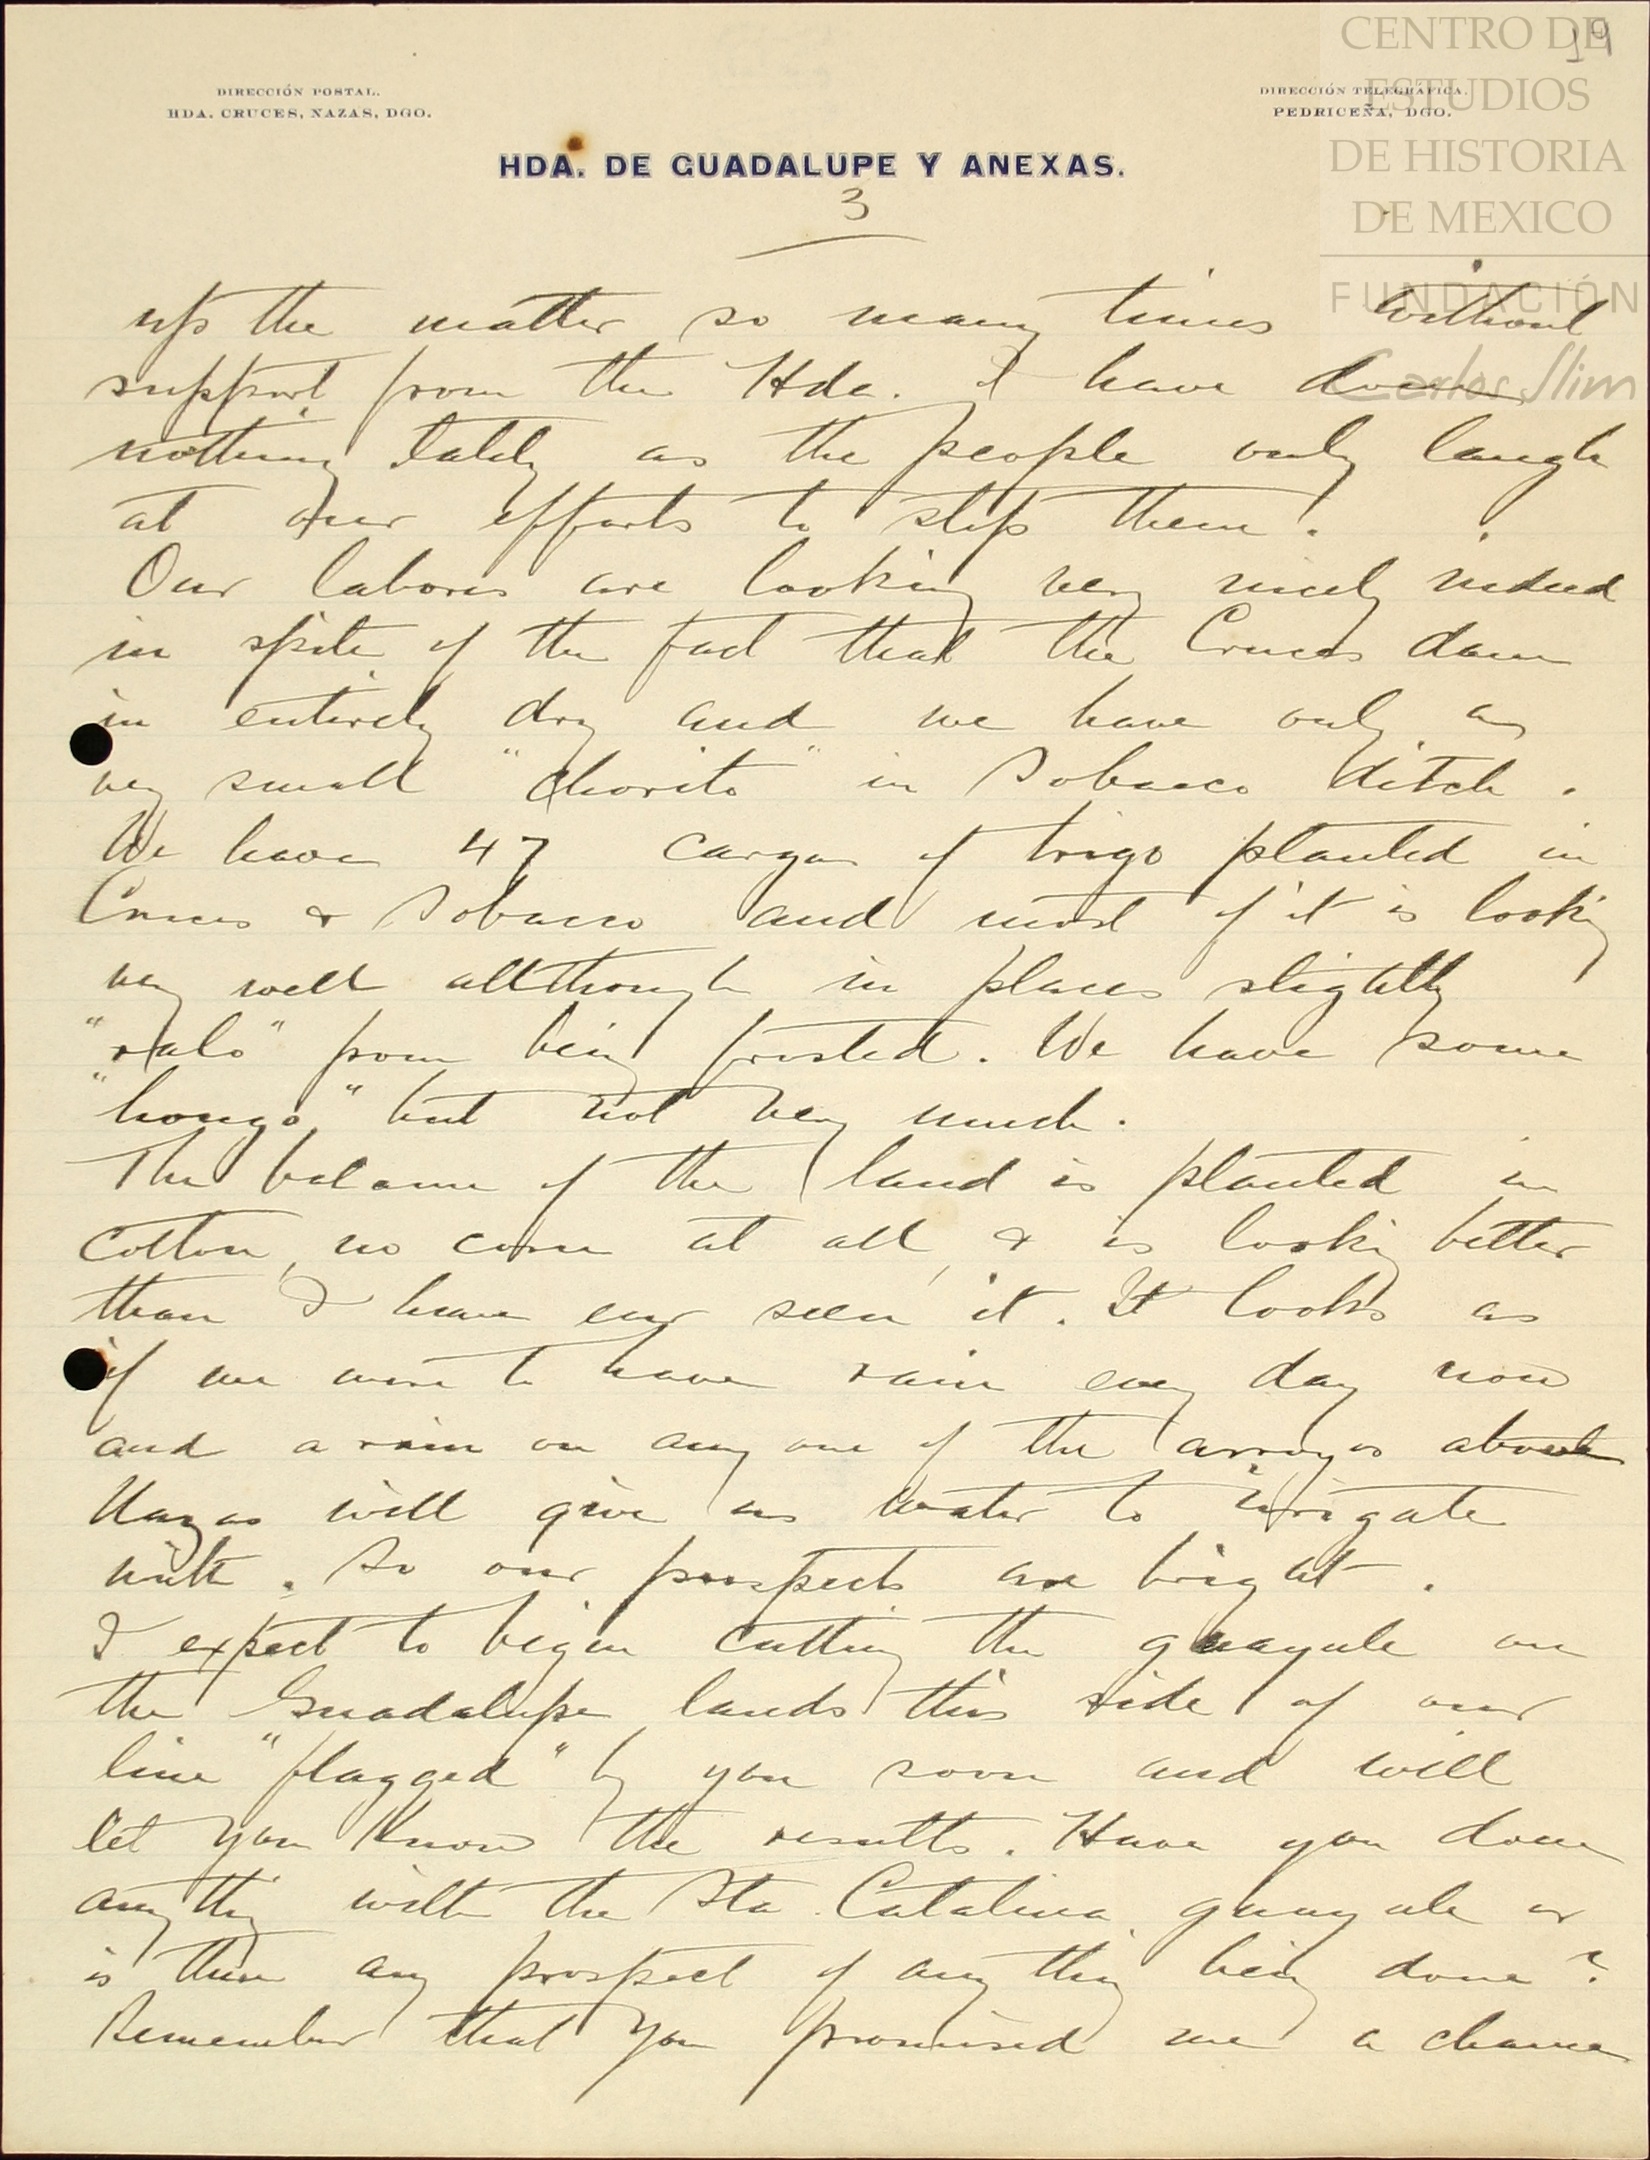 CENTRO DE
ESTUDIOS
DE HISTORIA
DE MEXICO
FUNDACIÓN
Carlos Slim
19
DIRECCIÓN POSTAL.
HDA. CRUCES, NAZAS, DGO.
DIRECCIÓN TELEGRÁFICA.
PEDRICEÑA, DGO.
HDA. DE GUADALUPE Y ANEXAS.
3
up the matter so many times without
support from the Hda. I have done
nothing lately as the people only laugh
at our efforts to stop them.
Our labores are looking very nicely indeed
in spite of the fact that the Cruces dam
in entirely dry and we have only a
very small "chorito" in Sobaco ditch.
We have 47 cargas of trigo planted in
Cruces & Sobaco and most of it is looking
very well allthough in places slightly
"ralo" from being frosted. We have some
"hongo" but not very much.
The balance of the land is planted in
cotton, no corn at all, & is looking better
than I have ever seen it. It looks as
if we were to have rain every day now
and a rain on any one of the arroyos above
Nazas will give us water to irrigate
with. So our prospects are bright.
I expect to begin cutting the guayule on
the Guadalupe lands this side of our
line "flagged" by you soon and will
let you know the results. Have you done
anything with the Sta. Catalina guayule or
is there any prospect of anything being done?
Remember that you promised me a chance